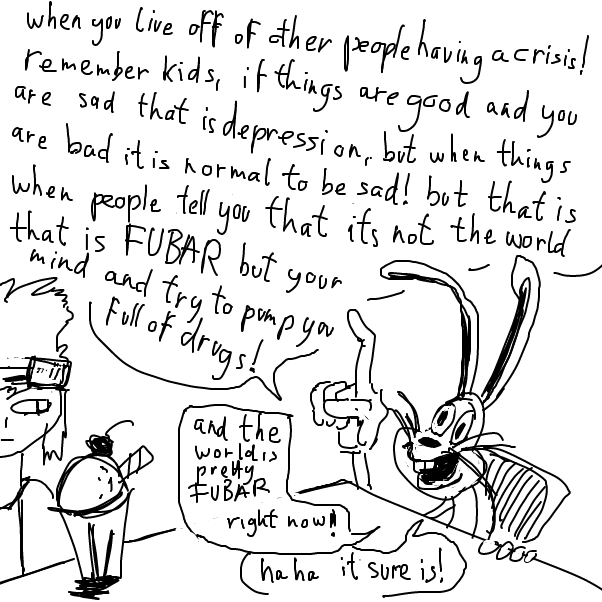 when you live off of other people having a crisis!
remember kids, if things are good and you
are sad that is depression, but when things
are bad it is normal to be sad! but that is
when people tell you that its not the world
that is FUBAR but your
mind and try to pump you
full of drugs!
and the
world is
pretty
FUBAR
right now!
haha it sure is!